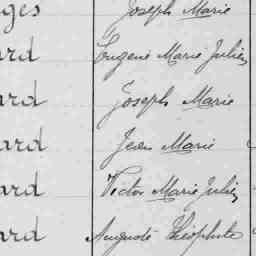 ges Joseph Marie
ard Eugène Marie Julien
ard Joseph Marie
ard Jean Marie
ard Victor Marie Julien
ard Auguste Théophile